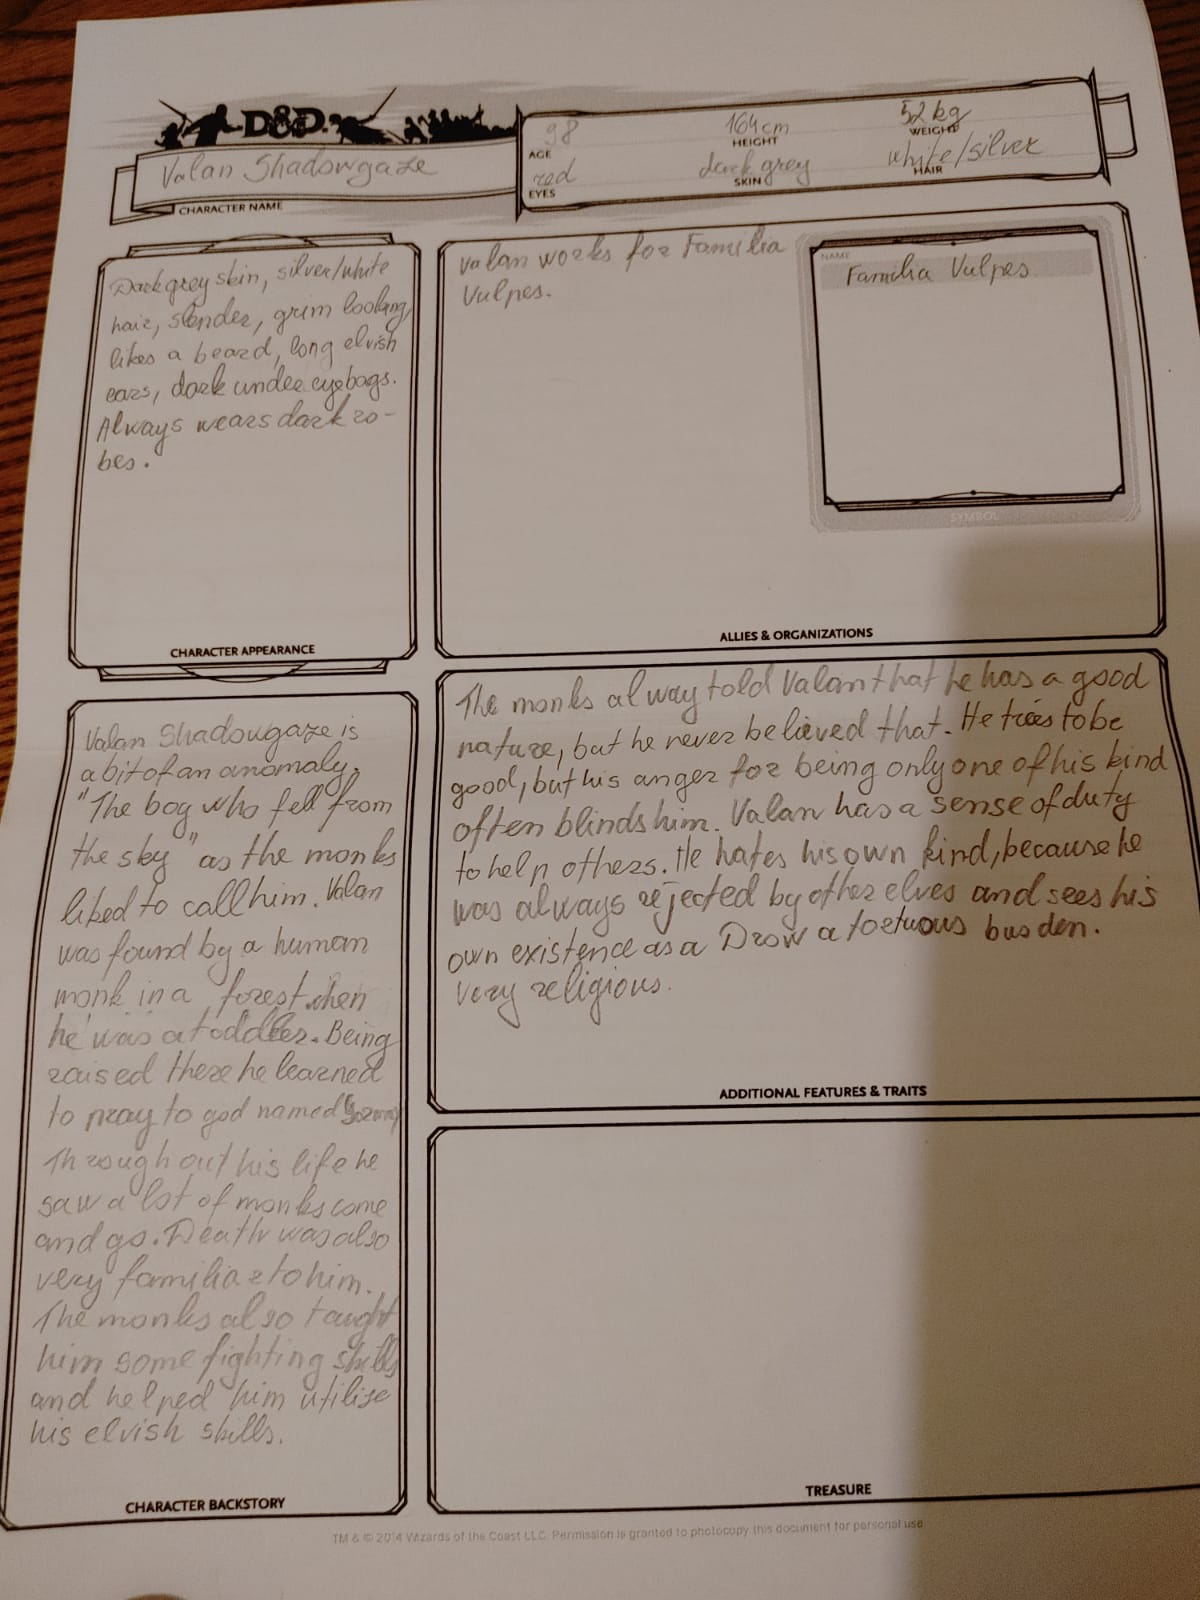 D&D
Valan Shadowgaze
CHARACTER NAME
98
AGE
164cm
HEIGHT
52kg
WEIGHT
red
EYES
dark grey
SKIN
white/silver
HAIR
Dark grey skin, silver/white
hair, slender, grim looking,
likes a beard, long elvish
ears, dark under eyebags.
Always wears dark ro-
bes.
CHARACTER APPEARANCE
Valan works for Familia
Vulpes.
NAME
Familia Vulpes
SYMBOL
ALLIES & ORGANIZATIONS
Valan Shadowgaze is
a bit of an anomaly.
"The boy who fell from
the sky" as the monks
liked to call him. Valan
was found by a human
monk in a forest when
he was a toddler. Being
raised there he learned
to pray to god named
Throughout his life he
saw a lot of monks come
and go. Death was also
very familiar to him.
The monks also taught
him some fighting skills
and helped him utilise
his elvish skills.
CHARACTER BACKSTORY
The monks alway told Valan that he has a good
nature, but he never believed that. He tries to be
good, but his anger for being only one of his kind
often blinds him. Valan has a sense of duty
to help others. He hates his own kind, because he
was always rejected by other elves and sees his
own existence as a Drow a tortuous burden.
Very religious.
ADDITIONAL FEATURES & TRAITS
TREASURE
TM & © 2014 Wizards of the Coast LLC. Permission is granted to photocopy this document for personal use